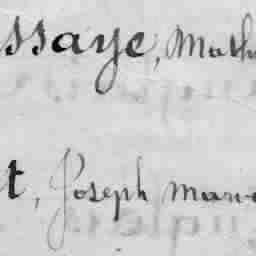 ssaye, Math
t, Joseph Marie